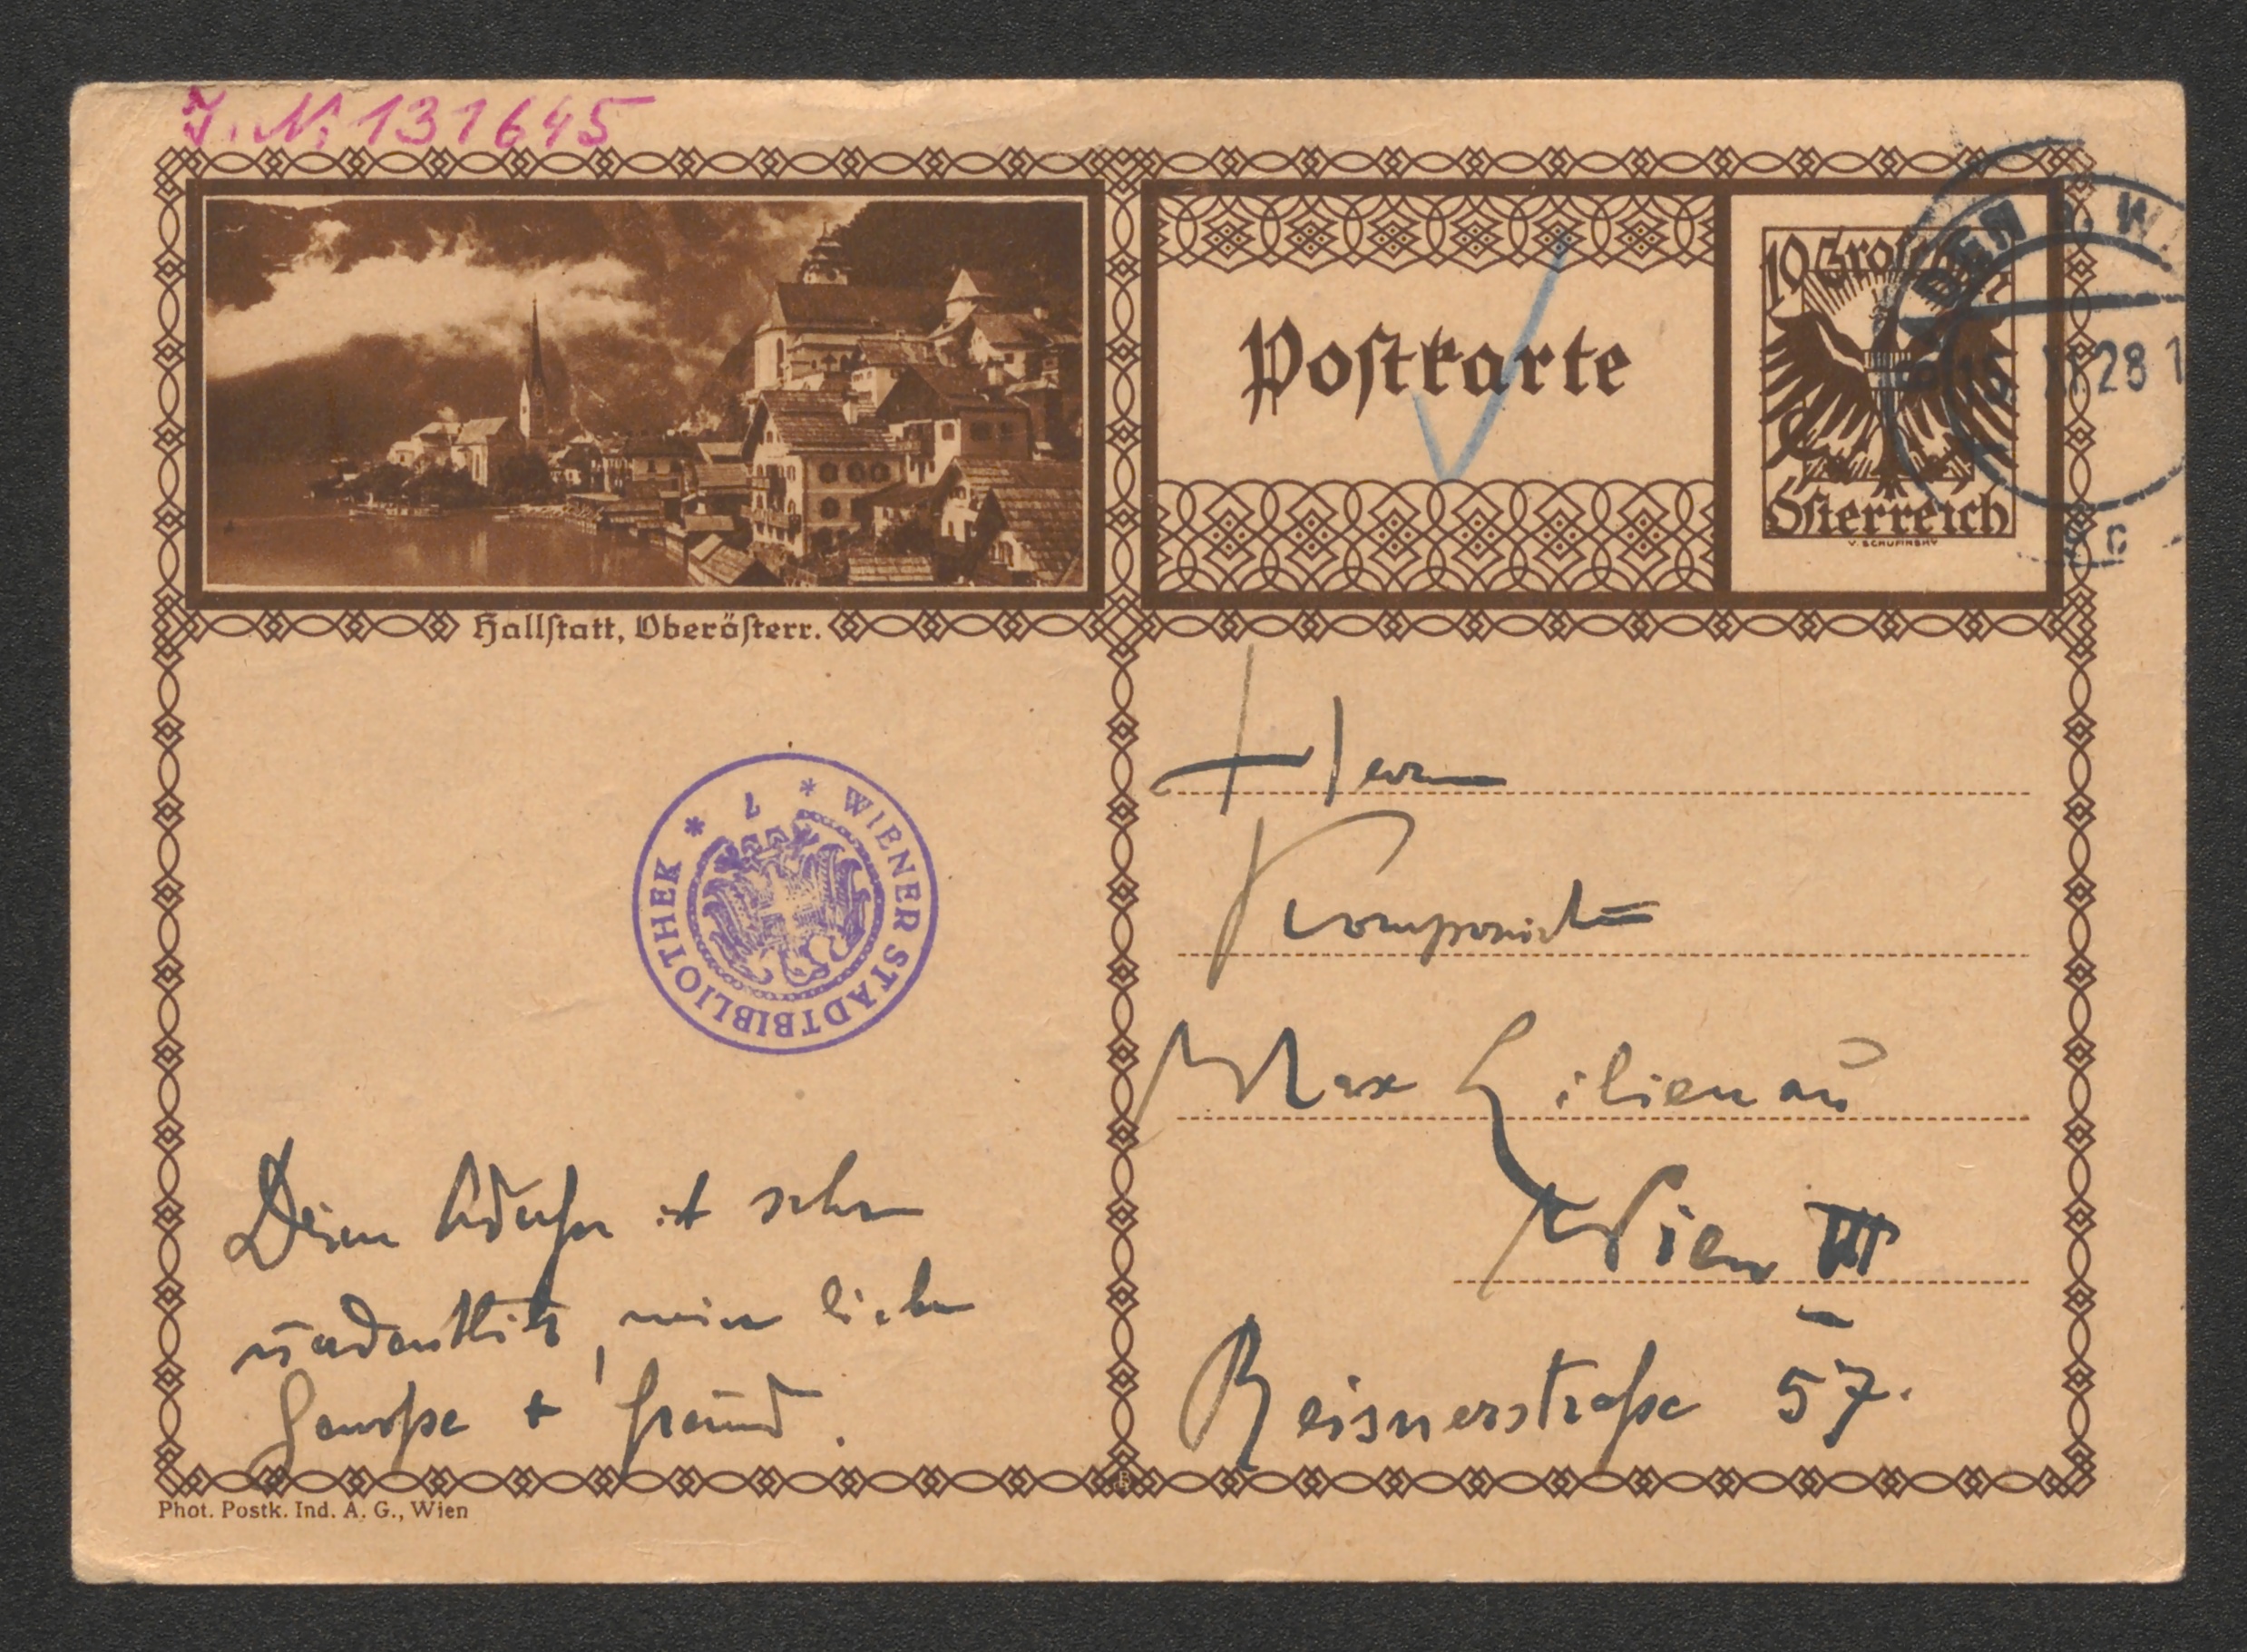 J. N. 131645
Postkarte
10 Groschen
Österreich
V. SCHUFINSKY
DEN b. W
28 1
c
Hallstatt, Oberösterr.
* WIENER STADTBIBLIOTHEK *
Herrn
Komponisten
Max Lilienau
Wien III
Reisnerstraße 57.
Deine Adresse ist sehr
undeutlich, mein lieber
Genosse + Freund.
Phot. Postk. Ind. A. G., Wien